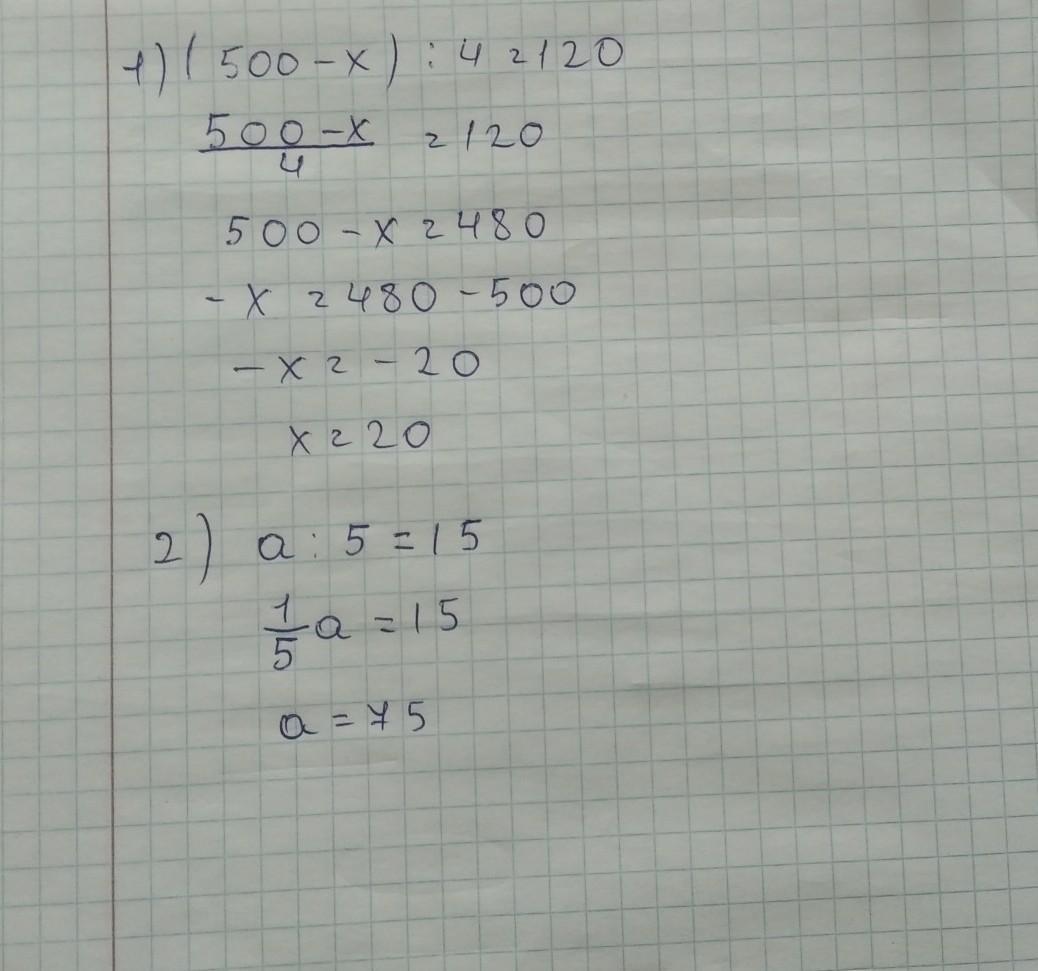 1) (500 - x) : 4 = 120
500 - x / 4 = 120
500 - x = 480
- x = 480 - 500
- x = - 20
x = 20
2) a : 5 = 15
1/5 a = 15
a = 75